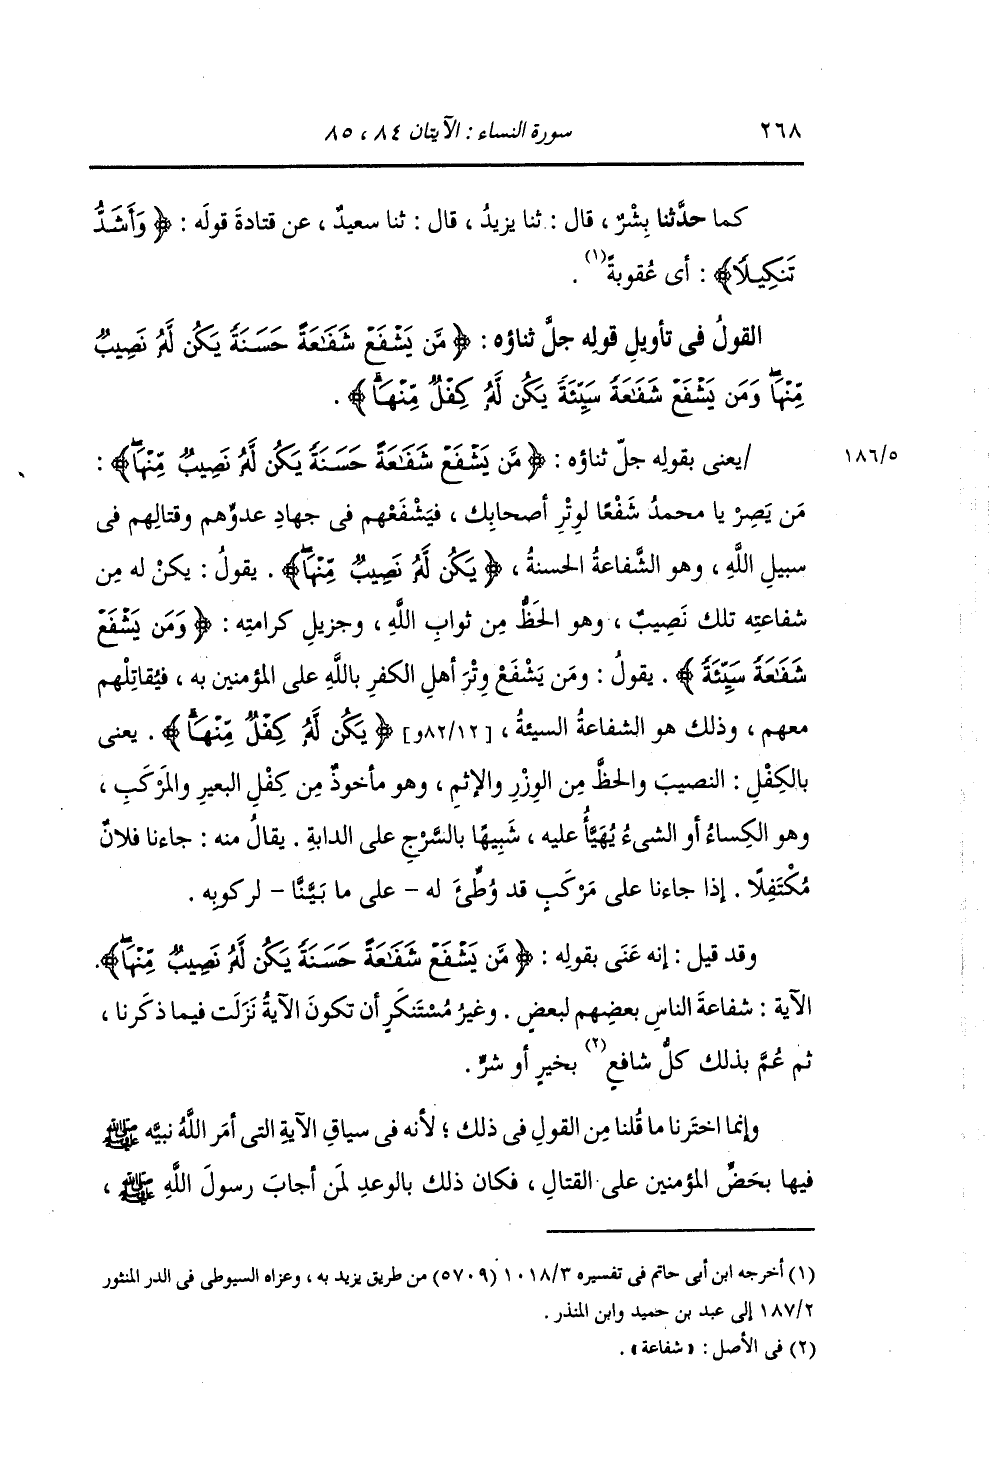 ٢٦٨ سورة النساء : الآيتان ٨٤ ، ٨٥
كما حدَّثنا بِشْرٌ ، قال : ثنا يزيدُ ، قال : ثنا سعيدٌ ، عن قتادةَ قولَه : ﴿ وَأَشَدُّ
تَنكِيلًا﴾ : أى عُقوبةً(١) .
القولُ فى تأويلِ قولِه جلَّ ثناؤه : ﴿ مَّن يَشْفَعْ شَفَٰعَةً حَسَنَةً يَكُن لَّهُۥ نَصِيبٌ
مِّنْهَاۖ وَمَن يَشْفَعْ شَفَٰعَةً سَيِّئَةً يَكُن لَّهُۥ كِفْلٌ مِّنْهَاۗ ﴾ .
١٨٦/٥ /يعنى بقولِه جلّ ثناؤه : ﴿ مَّن يَشْفَعْ شَفَٰعَةً حَسَنَةً يَكُن لَّهُۥ نَصِيبٌ مِّنْهَاۖ﴾ :
مَن يَصِرْ يا محمدُ شَفْعًا لوِتْرِ أصحابِك ، فيَشْفَعْهم فى جهادِ عدوِّهم وقتالِهم فى
سبيلِ اللَّهِ ، وهو الشَّفاعةُ الحسنةُ ، ﴿ يَكُن لَّهُۥ نَصِيبٌ مِّنْهَاۖ﴾ . يقولُ : يكنْ له مِن
شفاعتِه تلك نَصِيبٌ ، وهو الحَظُّ مِن ثوابِ اللَّهِ ، وجزيلِ كرامتِه : ﴿ وَمَن يَشْفَعْ
شَفَٰعَةً سَيِّئَةً ﴾ . يقولُ : ومَن يَشْفَعْ وِتْرَ أهلِ الكفرِ باللَّهِ على المؤمنين به ، فيُقاتِلْهم
معهم ، وذلك هو الشفاعةُ السيئةُ ، [٨٢/١٢و] ﴿ يَكُن لَّهُۥ كِفْلٌ مِّنْهَاۗ ﴾ . يعنى
بالكِفْلِ : النصيبَ والحظَّ مِن الوِزْرِ والإثمِ ، وهو مأخوذٌ مِن كِفْلِ البعيرِ والمَرْكَبِ ،
وهو الكِساءُ أو الشىءُ يُهَيَّأُ عليه ، شَبِيهًا بالسَّرْجِ على الدابةِ . يقالُ منه : جاءنا فلانٌ
مُكْتَفِلًا . إذا جاءنا على مَرْكَبٍ قد وُطِّئَ له - على ما بَيَّنَّا - لركوبِه .
وقد قيل : إنه عَنَى بقولِه : ﴿ مَّن يَشْفَعْ شَفَٰعَةً حَسَنَةً يَكُن لَّهُۥ نَصِيبٌ مِّنْهَاۖ﴾.
الآية : شفاعةَ الناسِ بعضِهم لبعضٍ . وغيرُ مُسْتَنكَرٍ أن تكونَ الآيةُ نَزَلَت فيما ذكَرنا ،
ثم عُمَّ بذلك كلُّ شافعٍ(٢) بخيرٍ أو شرٍّ .
وإنما اختَرنا ما قُلنا مِن القولِ فى ذلك ؛ لأنه فى سياقِ الآيةِ التى أمَر اللَّهُ نبيَّه ﷺ
فيها بحَضِّ المؤمنين على القتالِ ، فكان ذلك بالوعدِ لمَن أجابَ رسولَ اللَّهِ ﷺ ،
(١) أخرجه ابن أبى حاتم فى تفسيره ١٠١٨/٣ (٥٧٠٩) من طريق يزيد به ، وعزاه السيوطى فى الدر المنثور
١٨٧/٢ إلى عبد بن حميد وابن المنذر .
(٢) فى الأصل : « شفاعة » .